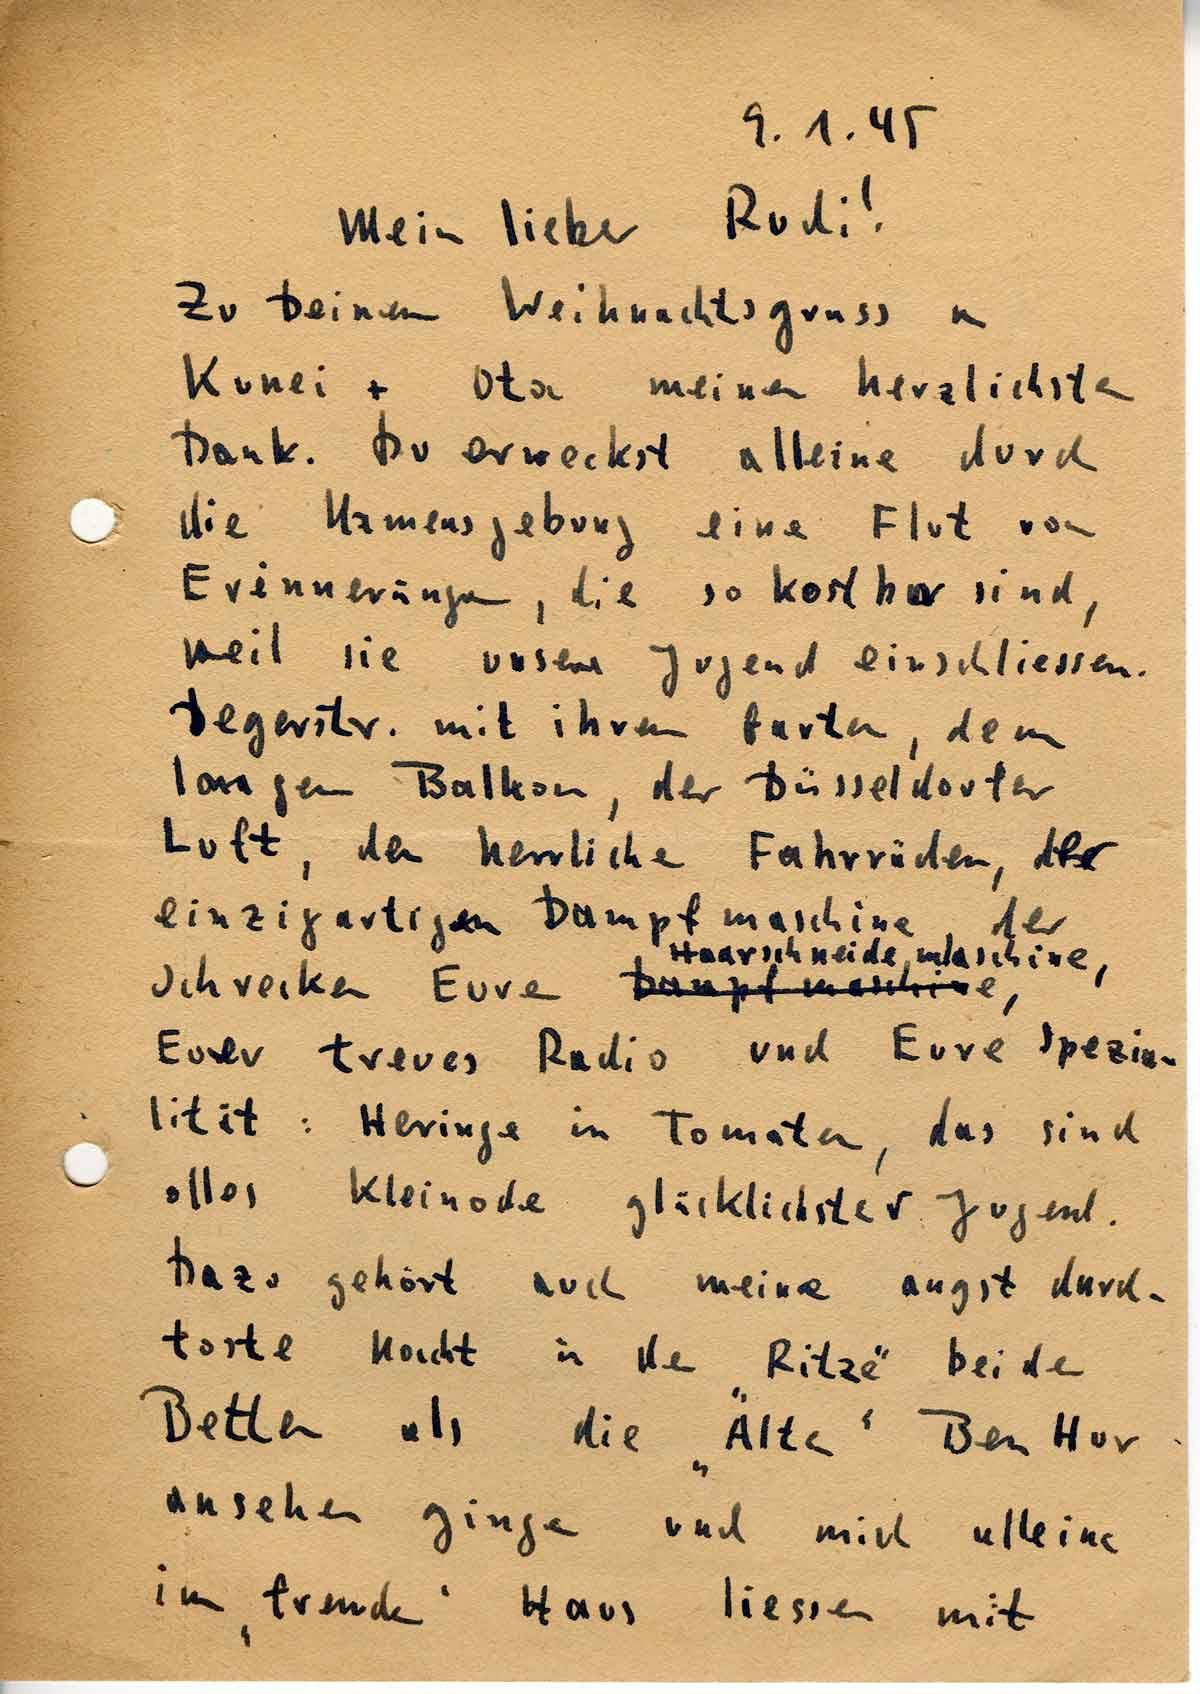 9. 1. 45
Mein lieber Rudi!
Zu Deinem Weihnachtsgruss an
Kunei + Ota meinen herzlichsten
Dank. Du erweckst alleine durch
die Namensgebung eine Flut von
Erinnerungen, die so kostbar sind,
weil sie unsere Jugend einschliessen.
Degerstr. mit ihrem Garten, dem
langen Balkon, der Düsseldorfer
Luft, den herrlichen Fahrrädern, der
einzigartigen Dampfmaschine, der
Haarschneidemaschine,
Schrecken Eure Dampfmaschine,
Euer treues Radio und Eure Spezia-
lität : Heringe in Tomaten, das sind
alles Kleinode glücklichster Jugend.
Dazu gehört auch meine angst durch-
toste Nacht in der „Ritze" beider
Betten als die „Alten" Ben Hur
ansehen gingen und mich alleine
im „fremden" Haus liessen mit